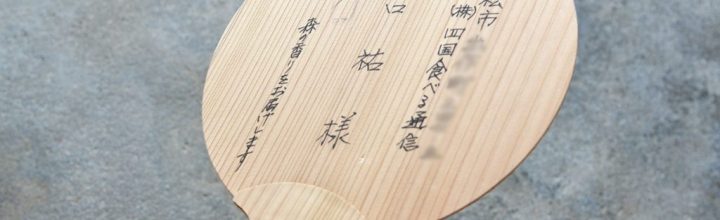 松市
(株)四国食べる通信
口祐様
森の香りをお届けします